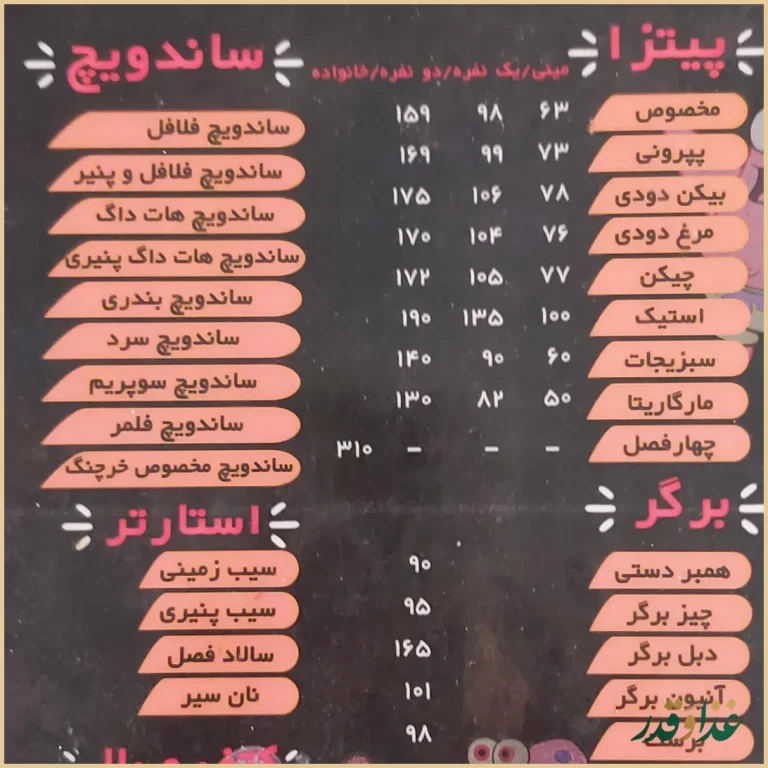 پیتزا
مینی/یک نفره/دو نفره/خانواده
مخصوص ۶۳ ۹۸ ۱۵۹
پپرونی ۷۳ ۹۹ ۱۶۹
بیکن دودی ۷۸ ۱۰۶ ۱۷۵
مرغ دودی ۷۶ ۱۰۴ ۱۷۰
چیکن ۷۷ ۱۰۵ ۱۷۲
استیک ۱۰۰ ۱۳۵ ۱۹۰
سبزیجات ۶۰ ۹۰ ۱۴۰
مارگاریتا ۵۰ ۸۲ ۱۳۰
چهارفصل - - - ۳۱۰
برگر
همبر دستی ۹۰
چیز برگر ۹۵
دبل برگر ۱۶۵
آنیون برگر ۱۰۱
۹۸
ساندویچ
ساندویچ فلافل
ساندویچ فلافل و پنیر
ساندویچ هات داگ
ساندویچ هات داگ پنیری
ساندویچ بندری
ساندویچ سرد
ساندویچ سوپریم
ساندویچ فلمر
ساندویچ مخصوص خرچنگ
استارتر
سیب زمینی
سیب پنیری
سالاد فصل
نان سیر
غذا و قدر